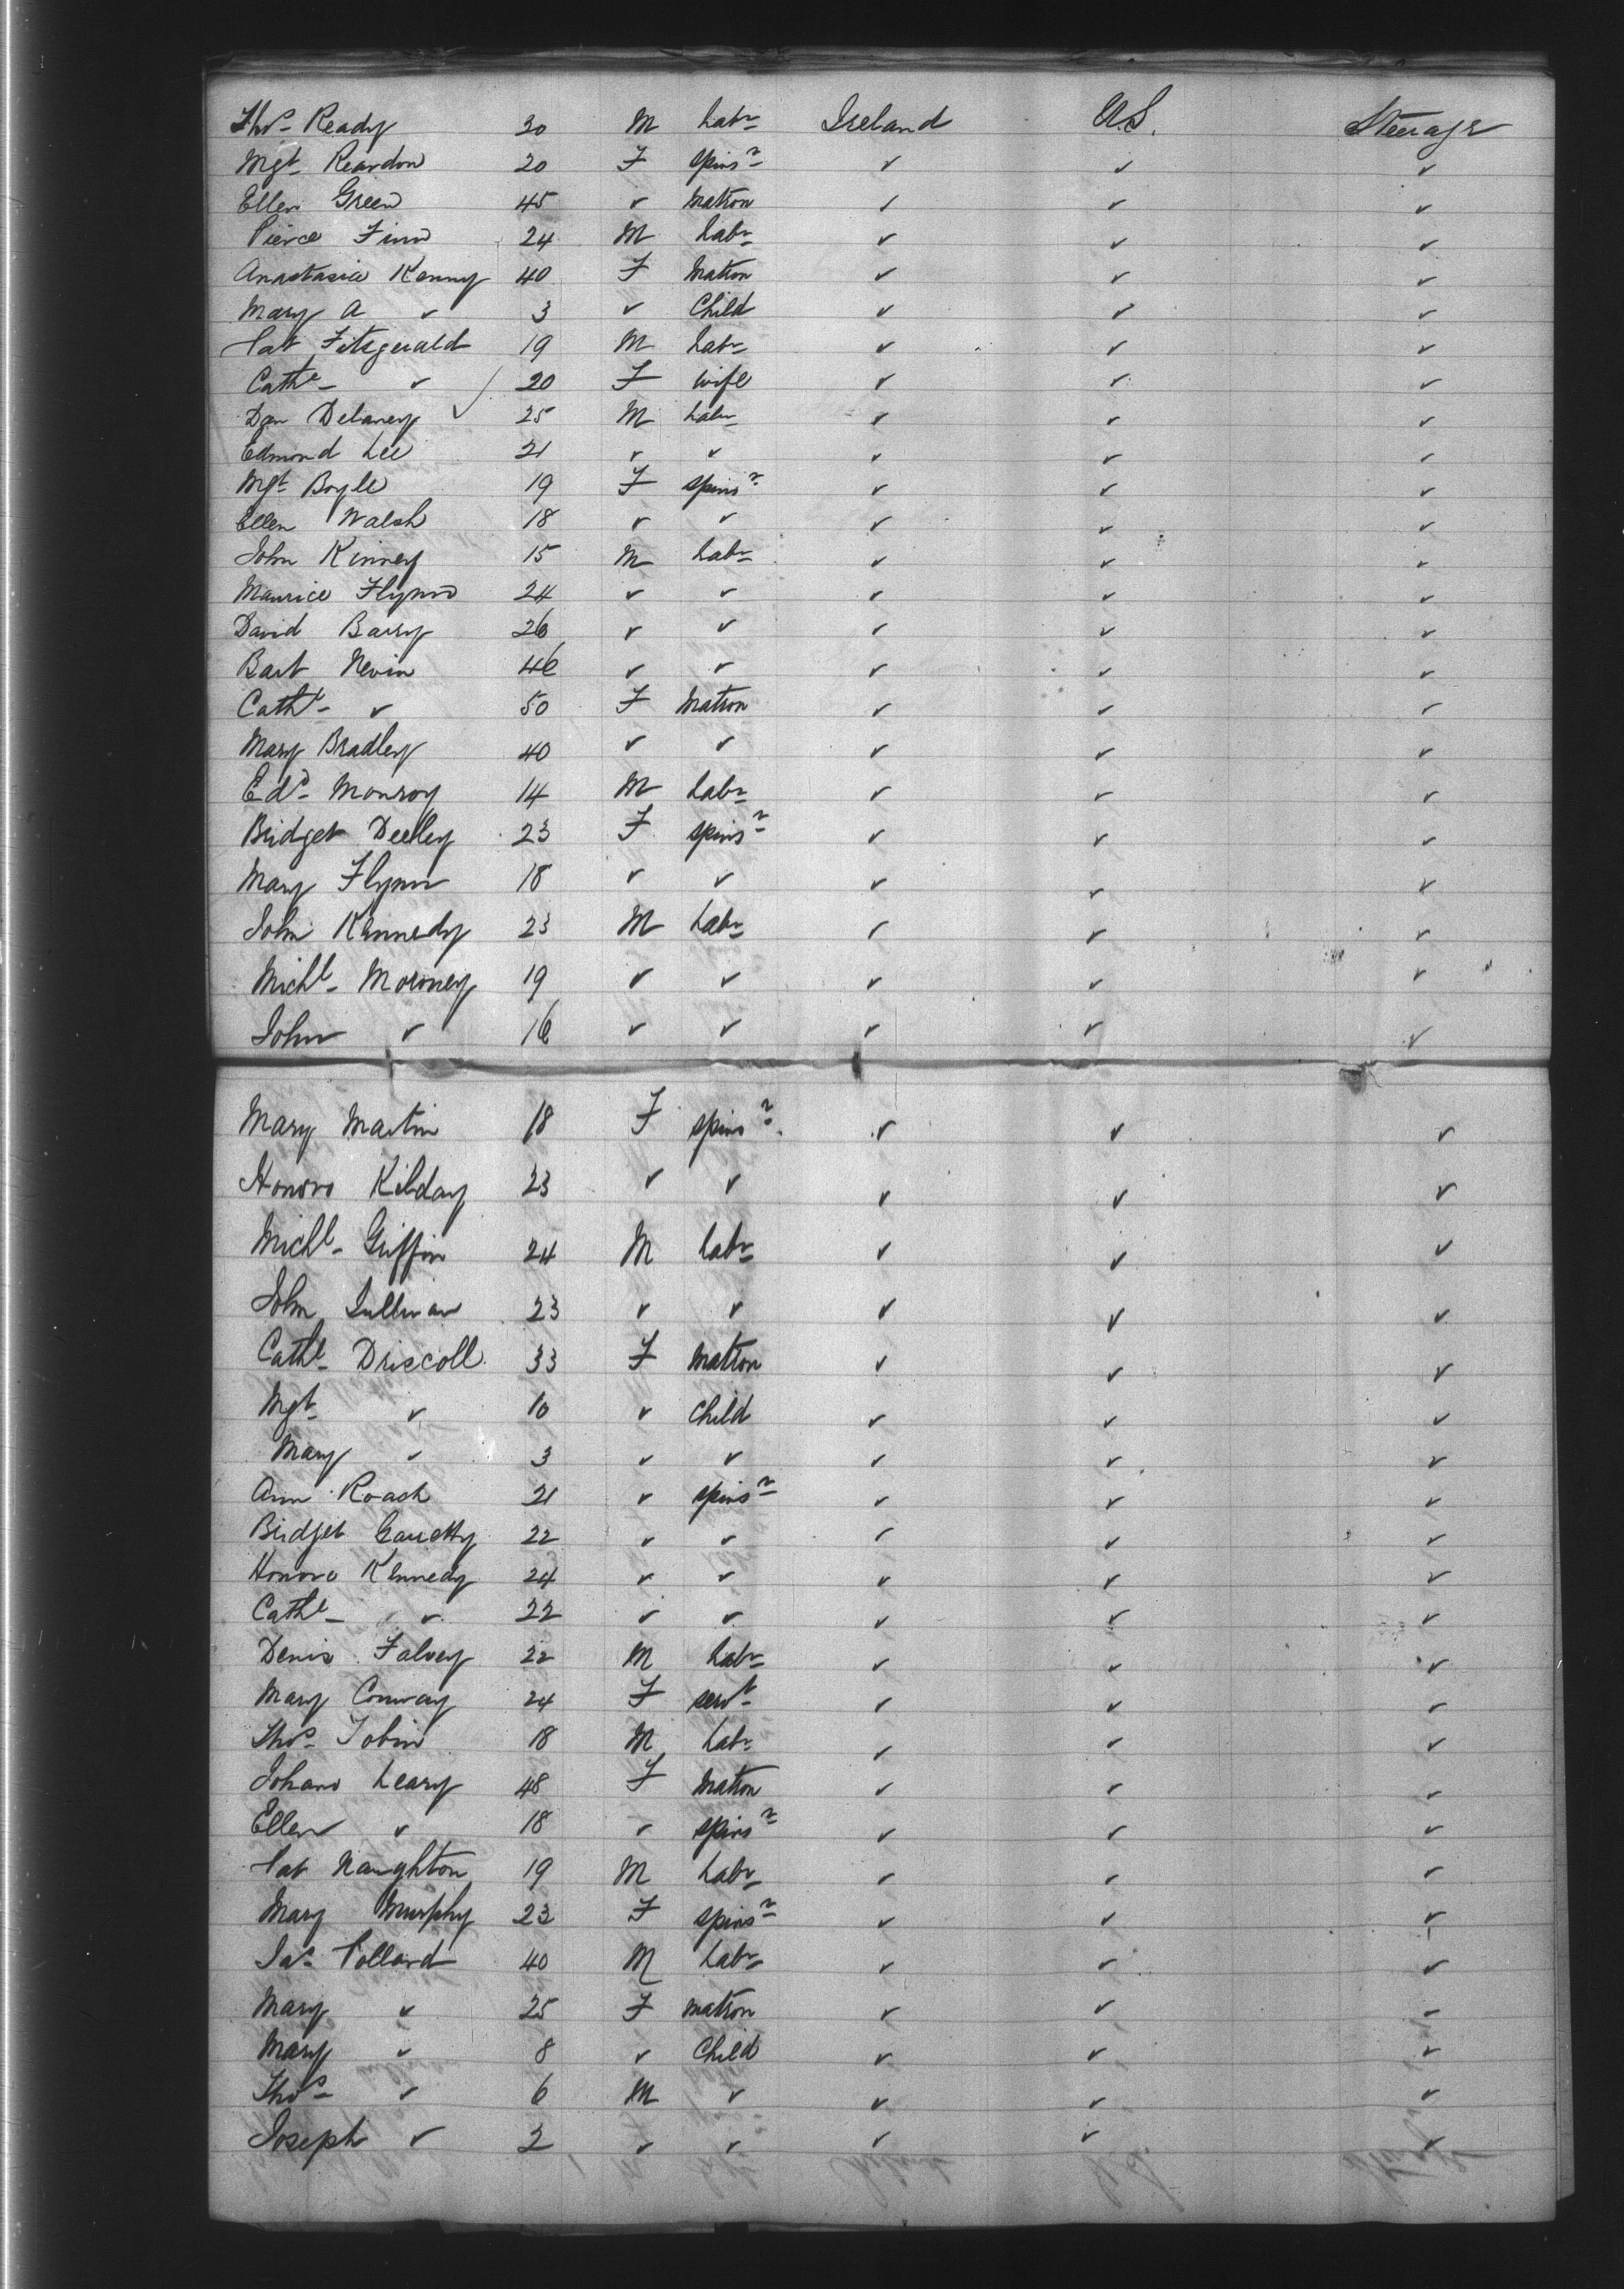 Thos Ready 30 M Labr Ireland U.S. Steerage
Mgt Reardon 20 F spinsr ✓ ✓ ✓
Ellen Green 45 ✓ Matron ✓ ✓ ✓
Pierce Finn 24 M Labr ✓ ✓ ✓
Anastasia Kenny 40 F Matron ✓ ✓ ✓
Mary A ✓ 3 ✓ Child ✓ ✓ ✓
Pat Fitzgerald 19 M Labr ✓ ✓ ✓
Cathe ✓ 20 F wife ✓ ✓ ✓
Dan Delaney ✓ 25 M Labr ✓ ✓ ✓
Edmond Lee 21 ✓ ✓ ✓ ✓ ✓
Mgt Boyle 19 F spinsr ✓ ✓ ✓
Ellen Walsh 18 ✓ ✓ ✓ ✓ ✓
John Kinney 15 M Labr ✓ ✓ ✓
Maurice Flynn 24 ✓ ✓ ✓ ✓ ✓
David Barry 26 ✓ ✓ ✓ ✓ ✓
Bart Nevin 46 ✓ ✓ ✓ ✓ ✓
Cathe ✓ 50 F Matron ✓ ✓ ✓
Mary Bradley 40 ✓ ✓ ✓ ✓ ✓
Edd Monroy 14 M Labr ✓ ✓ ✓
Bridget Deeley 23 F spinsr ✓ ✓ ✓
Mary Flynn 18 ✓ ✓ ✓ ✓ ✓
John Kennedy 23 M Labr ✓ ✓ ✓
Michl Moroney 19 ✓ ✓ ✓ ✓ ✓
John ✓ 16 ✓ ✓ ✓ ✓ ✓
Mary Martin 18 F spinsr ✓ ✓ ✓
Honora Kilday 23 ✓ ✓ ✓ ✓ ✓
Michl Griffin 24 M Labr ✓ ✓ ✓
John Sullivan 23 ✓ ✓ ✓ ✓ ✓
Cathe Driscoll 33 F Matron ✓ ✓ ✓
Mgt ✓ 10 ✓ Child ✓ ✓ ✓
Mary ✓ 3 ✓ ✓ ✓ ✓ ✓
Ann Roach 21 ✓ spinsr ✓ ✓ ✓
Bridget 22 ✓ ✓ ✓ ✓ ✓
Honora Kennedy 24 ✓ ✓ ✓ ✓ ✓
Cathe ✓ 22 ✓ ✓ ✓ ✓ ✓
Denis Falvey 22 M Labr ✓ ✓ ✓
Mary Conway 24 F servt ✓ ✓ ✓
Thos Tobin 18 M Labr ✓ ✓ ✓
Johana Leary 48 F Matron ✓ ✓ ✓
Ellen ✓ 18 ✓ spinsr ✓ ✓ ✓
Pat Naughton 19 M Labr ✓ ✓ ✓
Mary Murphy 23 F spinsr ✓ ✓ ✓
Jas Pollard 40 M Labr ✓ ✓ ✓
Mary ✓ 25 F Matron ✓ ✓ ✓
Mary ✓ 8 ✓ Child ✓ ✓ ✓
Thos ✓ 6 M ✓ ✓ ✓ ✓
Joseph ✓ 2 ✓ ✓ ✓ ✓ ✓